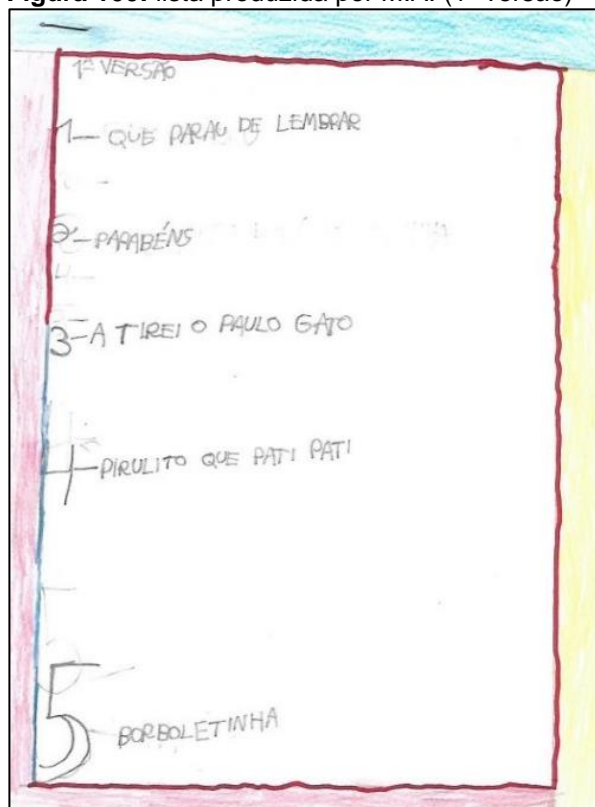 1ª VERSÃO
1- QUE PARAU DE LEMBRAR
2- PARABÉNS
3- A TIREI O PAULO GATO
4- PIRULITO QUE PATI PATI
5 BORBOLETINHA